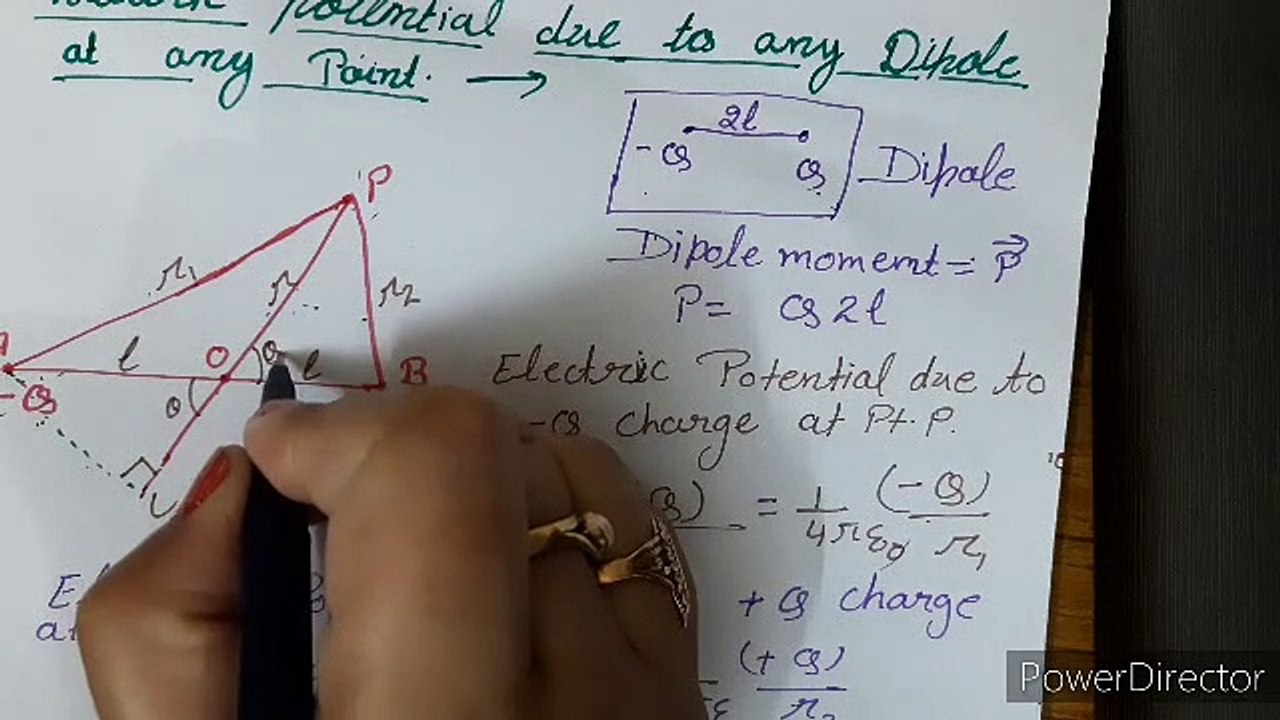 potential due to any Dipole
at any Point. →
2l
-Q Q Dipole
P
Dipole moment = P⃗
P = Q 2l
r1 r r2
l O θ l B
-Q θ
Electric Potential due to
-Q charge at Pt. P.
= 1/4πε0 (-Q)/r1
+Q charge
(+Q)
PowerDirector